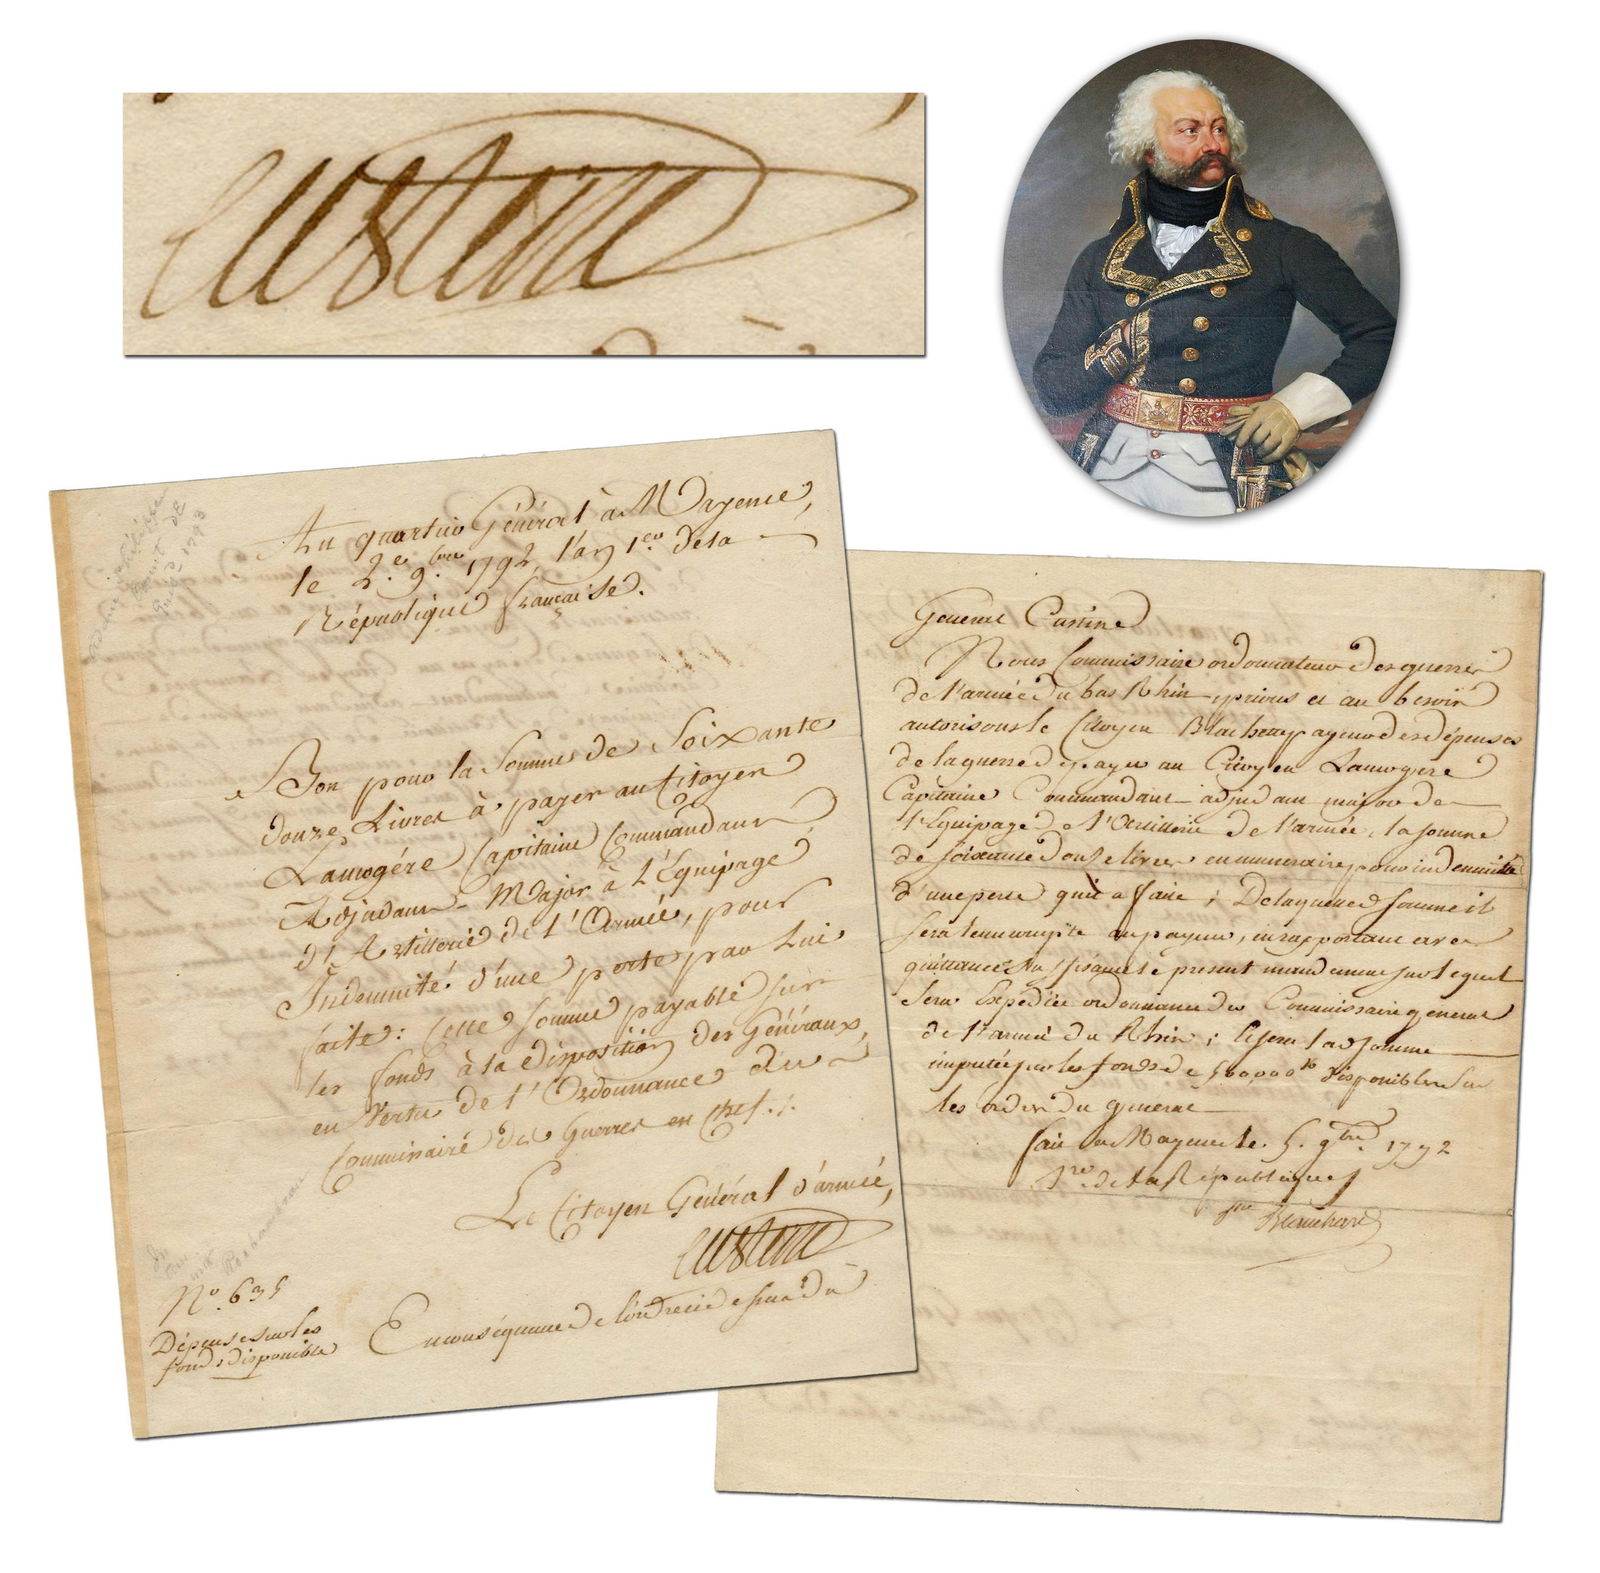 Custine
Au quartier Général à Mayence,
le 2.e 9.bre 1792, l'an 1.er de la
République française.
Bon pour la Somme de Soixante
douze Livres à payer au Citoyen
Lauvogére Capitaine Commandant
Adjudant-Major à L'Equipage
d'Artillerie de L'Armée, pour
Indemnité d'une perte par Lui
faite: Cette somme payable sur
les fonds à la disposition des Généraux,
en Vertu de l'Ordonnance du
Commissaire des Guerres en Chef.
Le Citoyen Général d'armée,
Custine
N.o 635
Dépense sur les
fonds disponible
En conséquence de l'ordre ci dessus du
General Custine
Nous Commissaire ordonnateur des guerres
de l'armée du bas Rhin, prions et au besoin
autorisons le Citoyen Blachette payeur des dépenses
de la guerre de payer au Citoyen Lauvogere
Capitaine Commandant adjudant major de
l'Equipage de l'Artillerie de l'armée, la somme
de soixante douze livres en numeraire pour indemnité
d'une perte qu'il a faite; De laquelle somme il
sera tenu compte au payeur, en rapportant avec
quittance le présent mandement sur lequel
sera Expédiée ordonnance du Commissaire general
de l'armée du Rhin; et sera la somme
imputée sur les fonds de 500000 disponibles sur
les ordres du general
fait à Mayence le 5. 9bre. 1792
1.re de la République
Blanchard